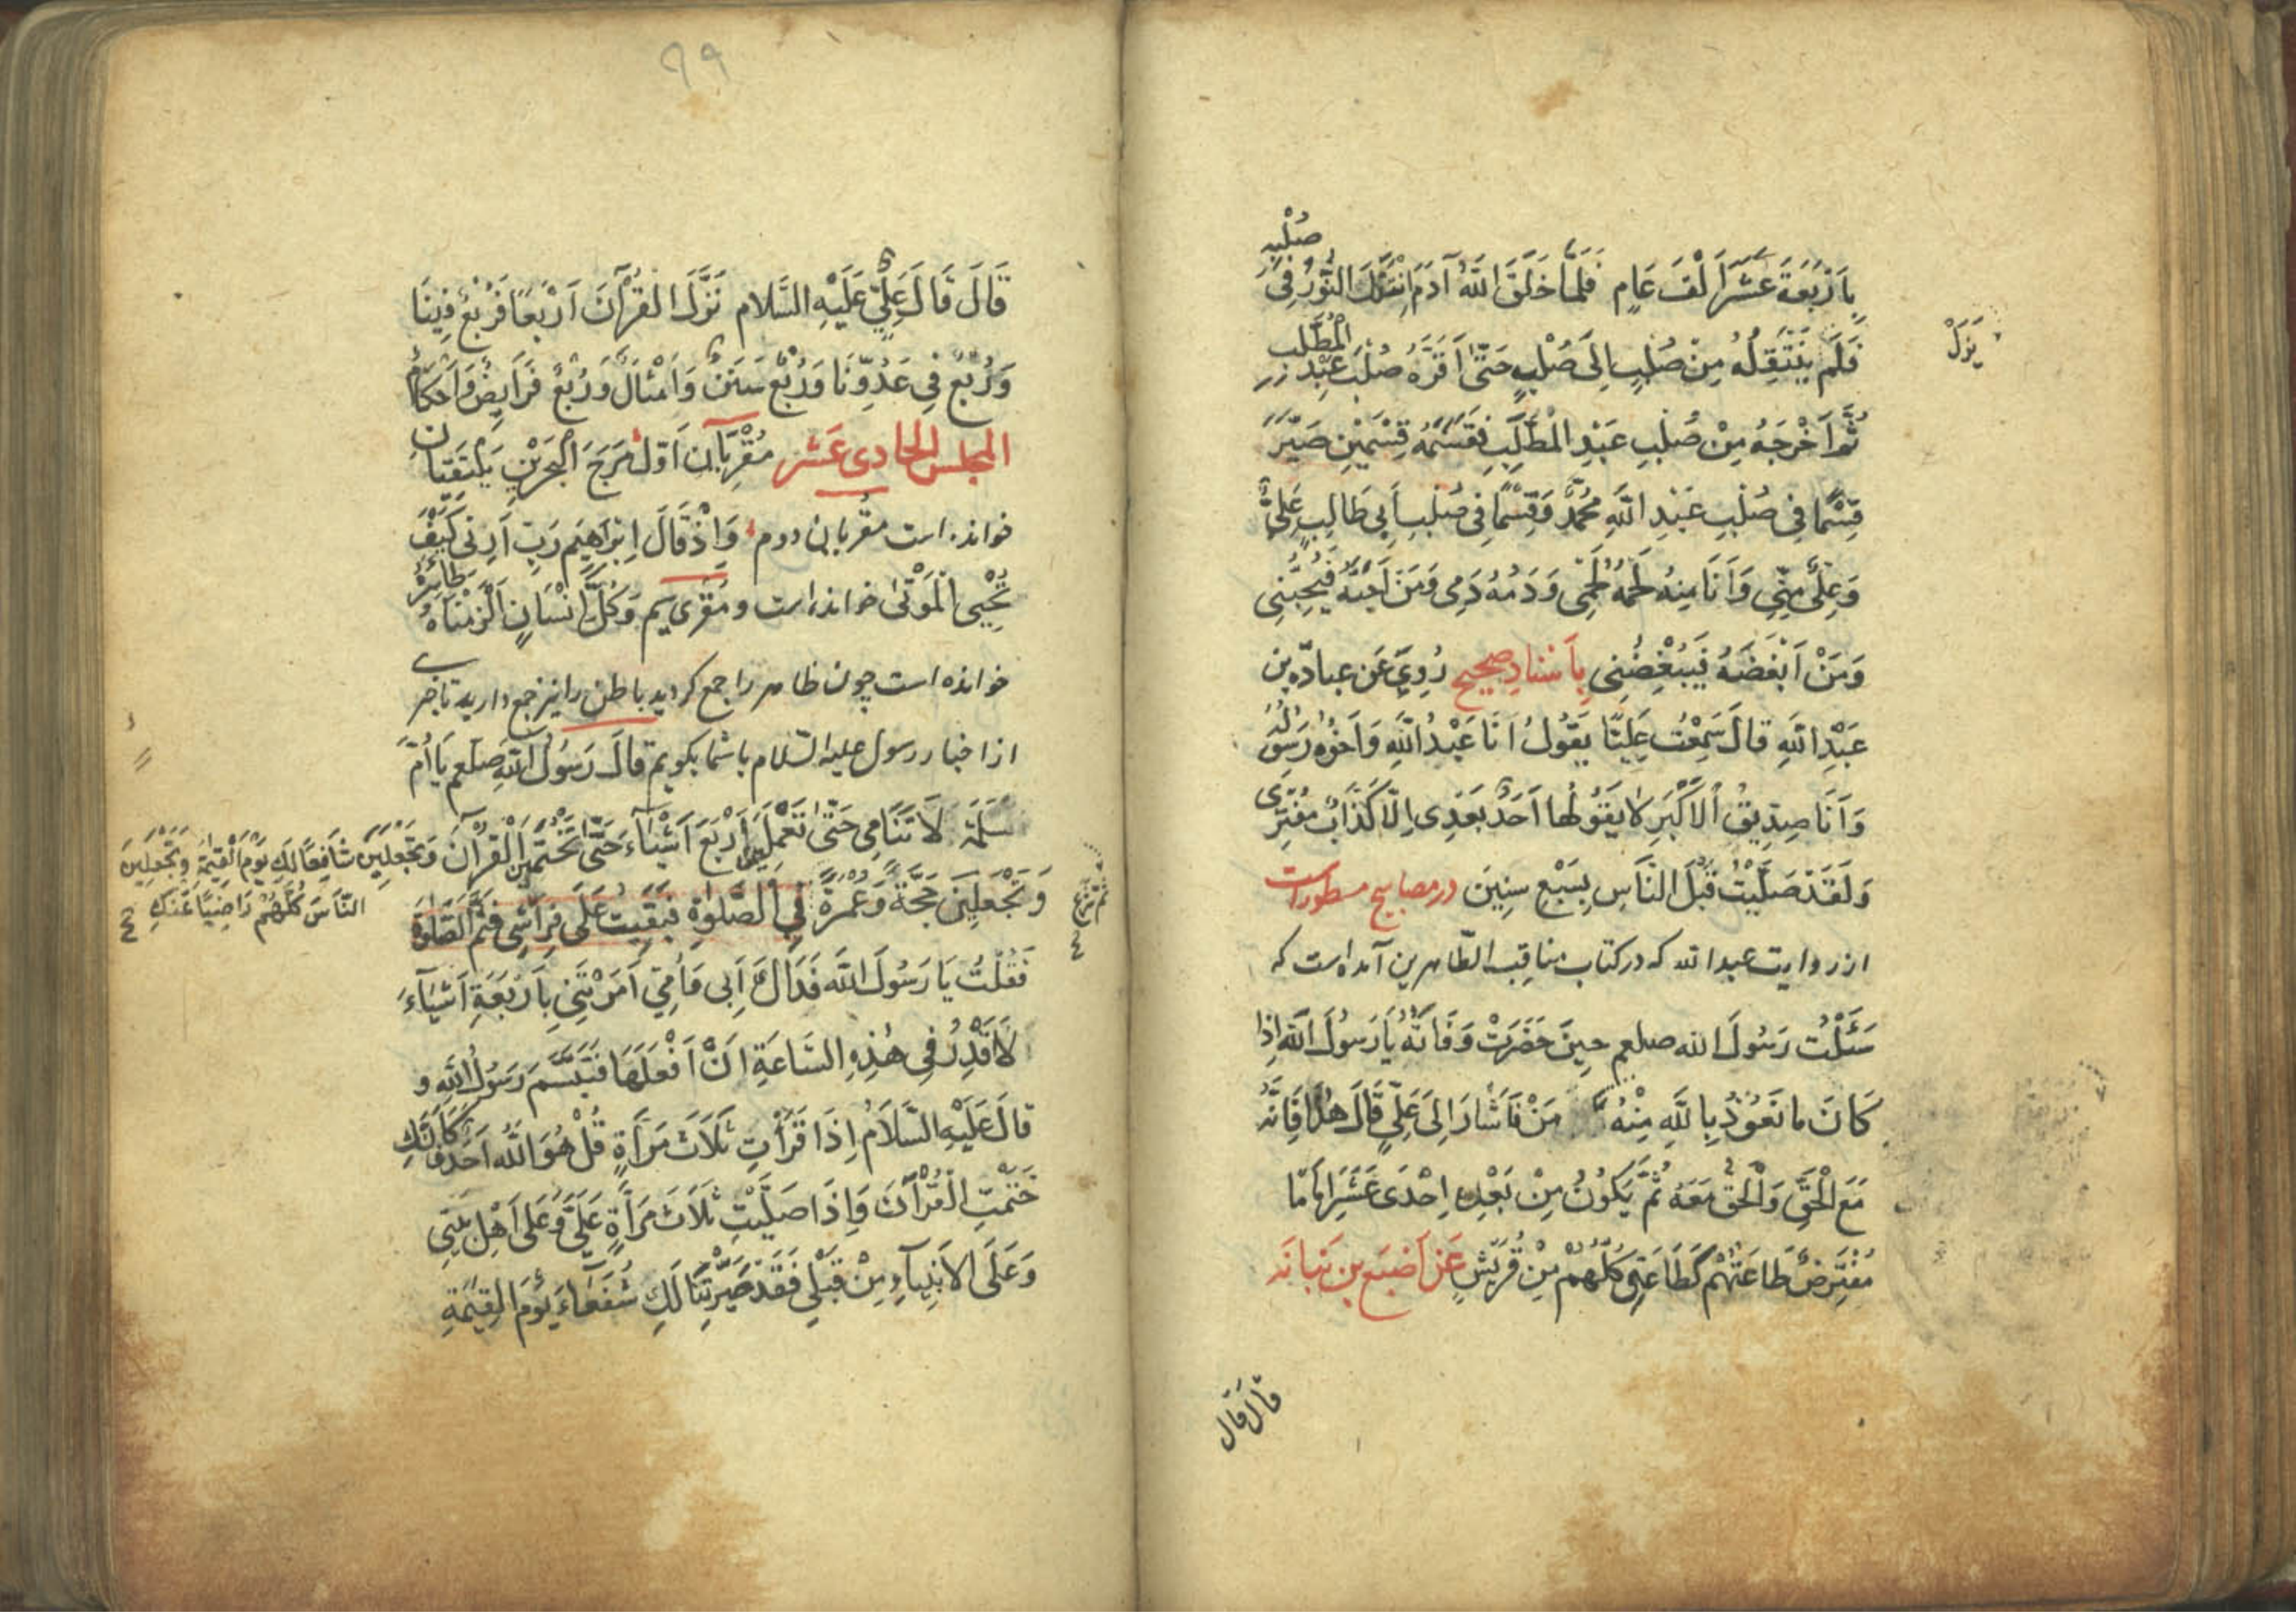 بِاَرْبَعَةَ عَشَرَ اَلْفَ عَامٍ فَلَمَّا خَلَقَ اللّٰهُ آدَمَ اِنْتَقَلَ النُّورُ فِى صُلْبِهِ
فَلَمْ يَنْتَقِلُهُ مِنْ صُلْبٍ اِلَى صُلْبٍ حَتّٰى اَقَرَّهُ صُلْبَ عَبْدِ الْمُطَّلِب
يَزَلْ
ثُمَّ اَخْرَجَهُ مِنْ صُلْبِ عَبْدِ الْمُطَّلِبِ فَقَسَمَهُ قِسْمَيْنِ صَيَّرَ
قِسْمًا فِى صُلْبِ عَبْدِ اللّٰهِ مُحَمَّدٌ وَقِسْمًا فِى صُلْبِ اَبِى طَالِبٍ عَلِىٌّ
وَعَلِىٌّ مِنِّى وَاَنَا مِنْهُ لَحْمُهُ لَحْمِى وَدَمُهُ دَمِى وَمَنْ اَحَبَّهُ فَيُحِبُّنِى
وَمَنْ اَبْغَضَهُ فَيُبْغِضُنِى بِاَسْنَادِ صَحِيحٍ رُوِىَ عَنْ عباده بن
عَبْدِ اللّٰهِ قَالَ سَمِعْتُ عَلِيًّا يَقُولُ اَنَا عَبْدُ اللّٰهِ وَاَخُوهُ رَسُولُهُ
وَاَنَا صِدِّيقُ الاَكْبَرِ لَا يَقُولُهَا اَحَدٌ بَعْدِى اِلَّا كَذَّابٌ مُفْتَرِى
وَلَقَدْ صَلَّيْتُ قَبْلَ النَّاسِ بِسَبْعِ سِنِينَ در مصابيح مسطور است
از روايت عبد الله كه در كتاب مناقب الطّاهرين آمده است كه
سَئَلْتُ رَسُولَ الله صلعم حِينَ حَضَرَتْ وَفَاتُهُ يَا رَسُولَ اللّٰهِ اِذَا
كَانَ مَا نَعُوذُ بِاللّٰهِ مِنْهُ مَنْ فَاَشَارَ اِلَى عَلِىٍّ قَالَ هٰذَا فَاِنَّهُ
مَعَ الْحَقِّ وَالْحَقُّ مَعَهُ ثُمَّ يَكُونُ مِنْ بَعْدِهِ اِحْدَى عَشَرَ اِمَامًا
مُفْتَرَضٌ طَاعَتُهُمْ كَطَاعَتِى كُلُّهُمْ مِنْ قُرَيْشٍ عَنْ اَصْبَعِ بْنِ نَبَاتَه
قَالَ قَالَ
٩٩
قَالَ قَالَ عَلِىٌّ عَلَيْهِ السَّلَام نَزَّلَ الْقُرْآنَ اَرْبَعًا فَرُبْعٌ فِينَا
وَرُبْعٌ فِى عَدُوِّنَا وَرُبْعٌ سُنَنٌ وَاَمْثَالٌ وَرُبْعٌ فَرَايِضُ وَاَحْكَامٌ
المجلس الحادى عشر مُقْرِيَانِ اَوّل مَرَجَ الْبَحْرَيْنِ يَلْتَقِيَانِ
خوانده است مقريان دوم وَاِذْ قَالَ اِبْرَاهِيمَ رَبِّ اَرِنِى كَيْفَ
تُحْيِى الْمَوْتٰى خوانده است و مُقرى سيم وَكُلَّ اِنْسَانٍ اَلْزَمْنَاهُ طَائِرَهُ
خوانده است چون ظاهر را جمع كرديد باطن را نيز جمع داريد تا خبرى
از اخبار رسول عليه السّلام با شما بكويم قَالَ رَسُولُ اللّٰهِ صلعم يَا اُمَّ
سَلَمَة لَا تَنَامِى حَتّٰى تَعْمَلِينَ اَرْبَعَ اَشْيَاءَ حَتّٰى تَخْتَمِينَ الْقُرْآنَ وَتَجْعَلِينَ شَافِعًا لَكِ يَوْمَ الْقِيٰمَةِ وَتَجْعَلِينَ
النَّاسَ كُلَّهُمْ رَاضِيًا عَنْكِ
وَتَجْعَلِينَ حَجَّةً وَعُمْرَةً فِى الصَّلٰوةِ فَبَقِيتُ عَلَى فِرَاشِى فَتَمَّ الصَّلٰوةُ
فَقُلْتُ يَا رَسُولَ اللّٰهِ فَدَاكَ اَبِى وَاُمِّى اَمَرْتَنِى بِاَرْبَعَةِ اَشْيَآءَ
لَا قَدِرُ فِى هٰذِهِ السَّاعَةِ اَنْ اَفْعَلَهَا فَتَبَسَّمَ رَسُولُ اللّٰهِ وَ
قَالَ عَلَيْهِ السَّلَامُ اِذَا قَرَأْتِ ثَلَاثَ مَرَّاةٍ قُلْ هُوَ اللّٰهُ اَحَد فَكَاَنَّكِ
خَتَمْتِ الْقُرْآنَ وَاِذَا صَلَّيْتِ ثَلَاثَ مَرَّاةٍ عَلَىَّ وَعَلَى اَهْلِ بَيْتِى
وَعَلَى الاَنْبِيَآءِ مِنْ قَبْلِى فَقَدْ صَيَّرْتِنَا لَكِ شُفَعَاءَ يَوْمَ الْقِيٰمَةِ